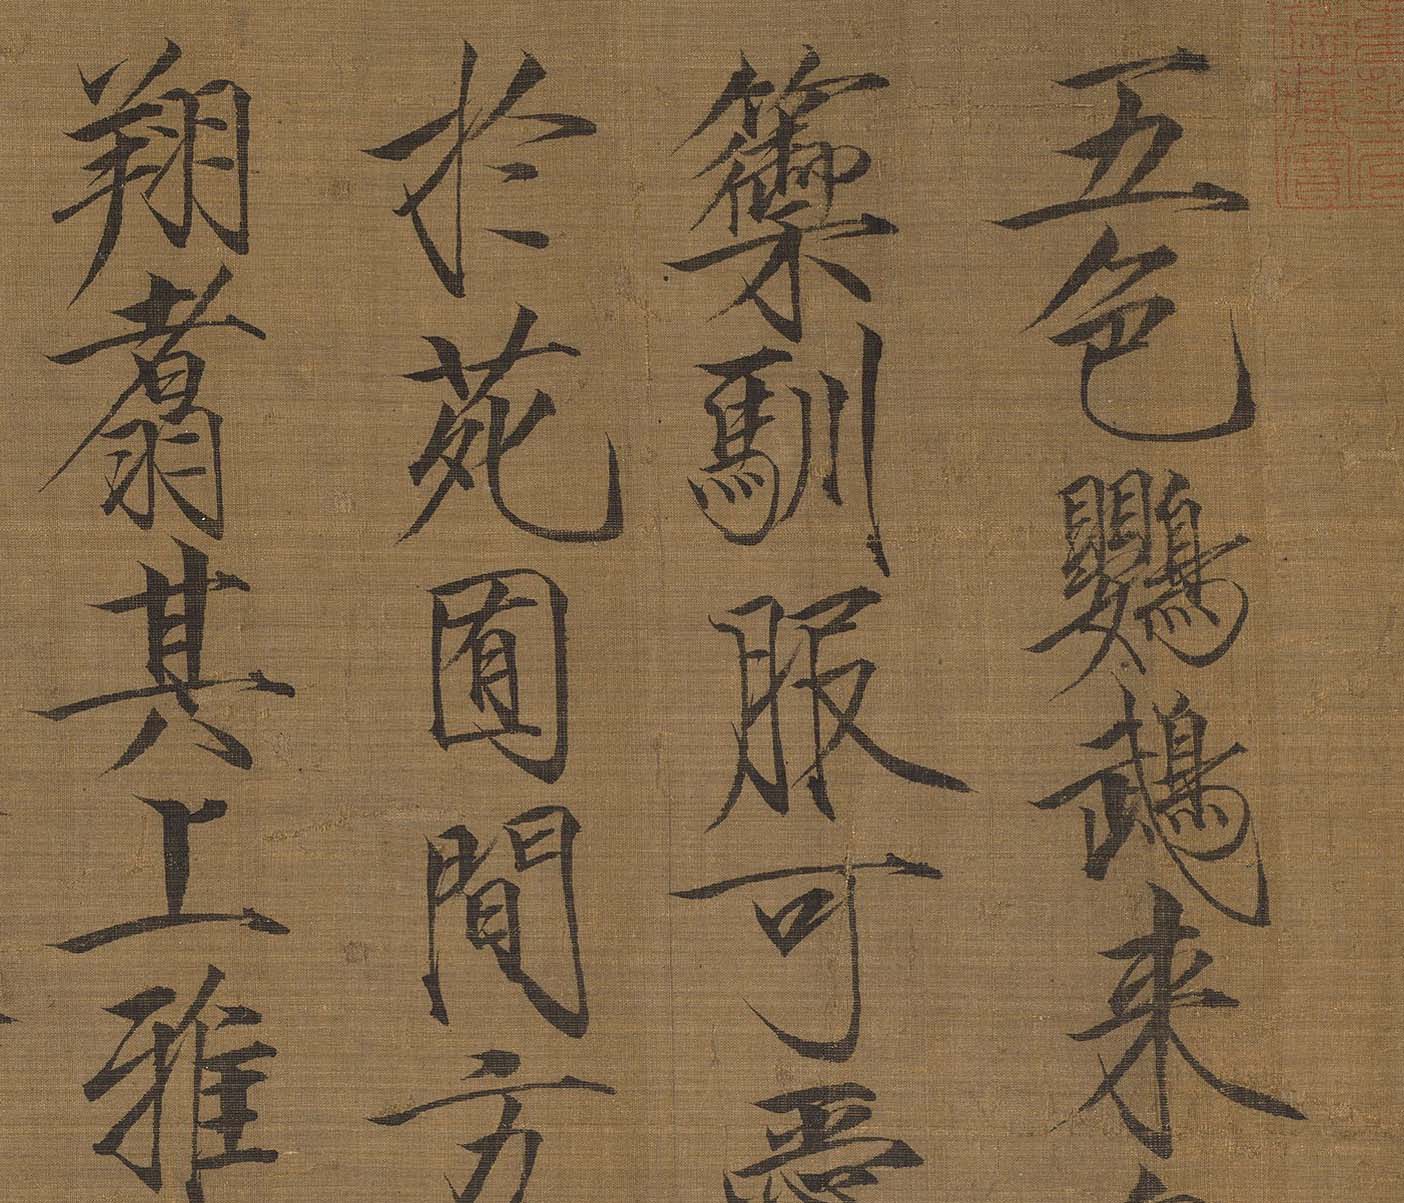 五色鸚鵡来
籞馴服可
於苑囿間方
翔翥其上雅